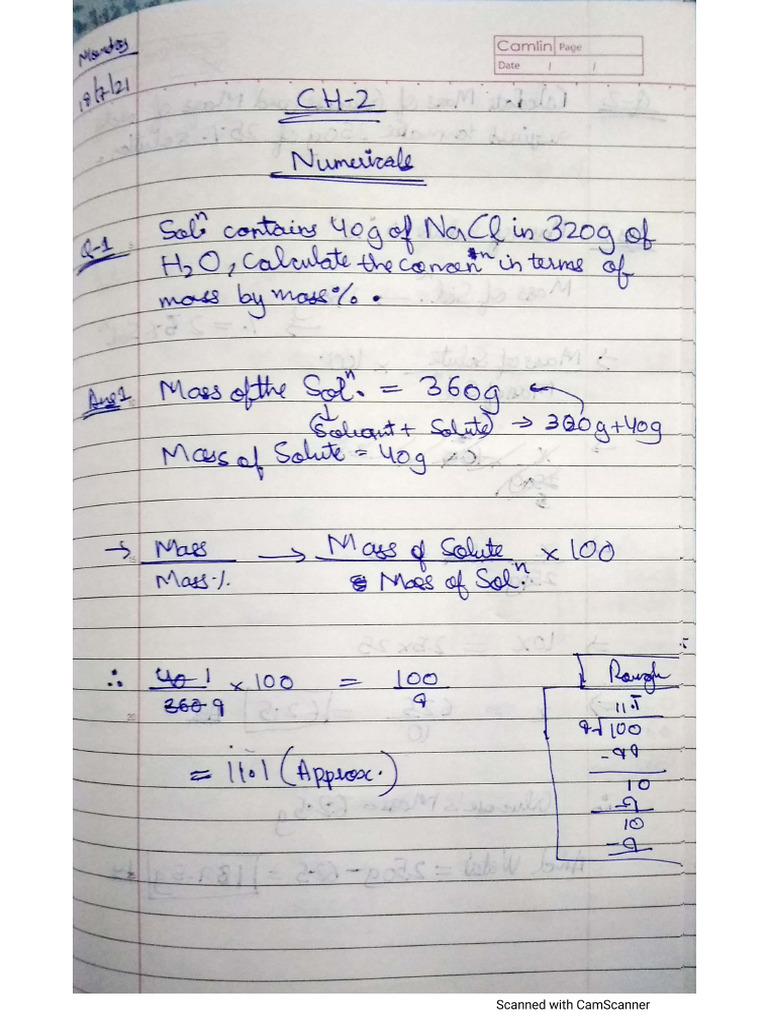 Monday
19/7/21
Camlin Page
Date / /
CH-2
Numericals
Q-1 Solⁿ. contains 40g of NaCl in 320g of
H₂O, Calculate the concenⁿ in terms of
mass by mass%.
Ans1 Mass of the Solⁿ. = 360g
(Solvant + Solute) → 320g+40g
Mass of Solute = 40g
→ Mass → Mass of Solute × 100
Mass% Mass of Solⁿ.
∴ 40 1 × 100 = 100
360 9 9
= 11.1 (Approx.)
Rough
11.1
9√100
-99
10
-9
10
-9
Scanned with CamScanner